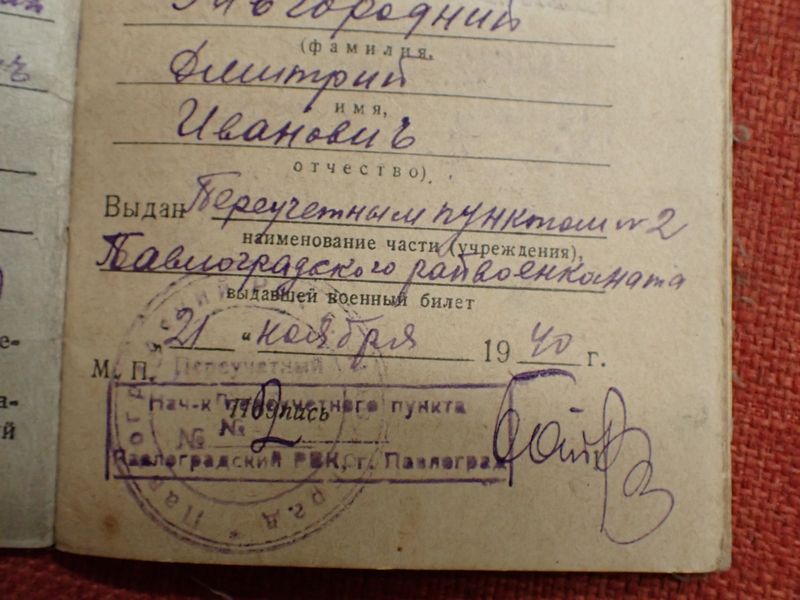 (фамилия,
Дмитрий
имя,
Иванович
отчество).
Выдан Переучетным пунктом № 2
наименование части (учреждения),
Павлоградского райвоенкомата
выдавшей военный билет
"21" ноября 1940 г.
М. П. Переучетный
Нач-к Переучетного пункта
Подпись
№ № 2
Павлоградский РВК, г. Павлоград